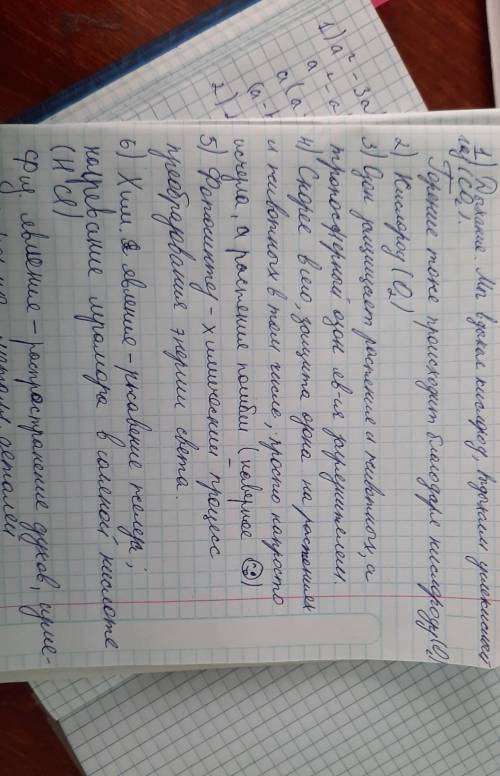 1) Дыхание. Мы вдыхая кислород, выдыхаем углекислый
газ (CO₂).
Горение тоже происходит благодаря кислороду (O₂)
2) Кислород (O₂)
3) Озон защищает растения и животных, а
тропосферной озон яв-ся загрязнителем.
4) Скорее всего, защита озона на растениях
и животных в том числе, просто напросто
исчезла, а растения погибли (наверное ☺)
5) Фотосинтез - химический процесс
преобразования энергии света.
6) Хим. явление - ржавение железа;
нагревание мрамора в соляной кислоте
(HCl)
Физ. явление - распространение духов, изме-
деталей
1) a² - 3a
2)